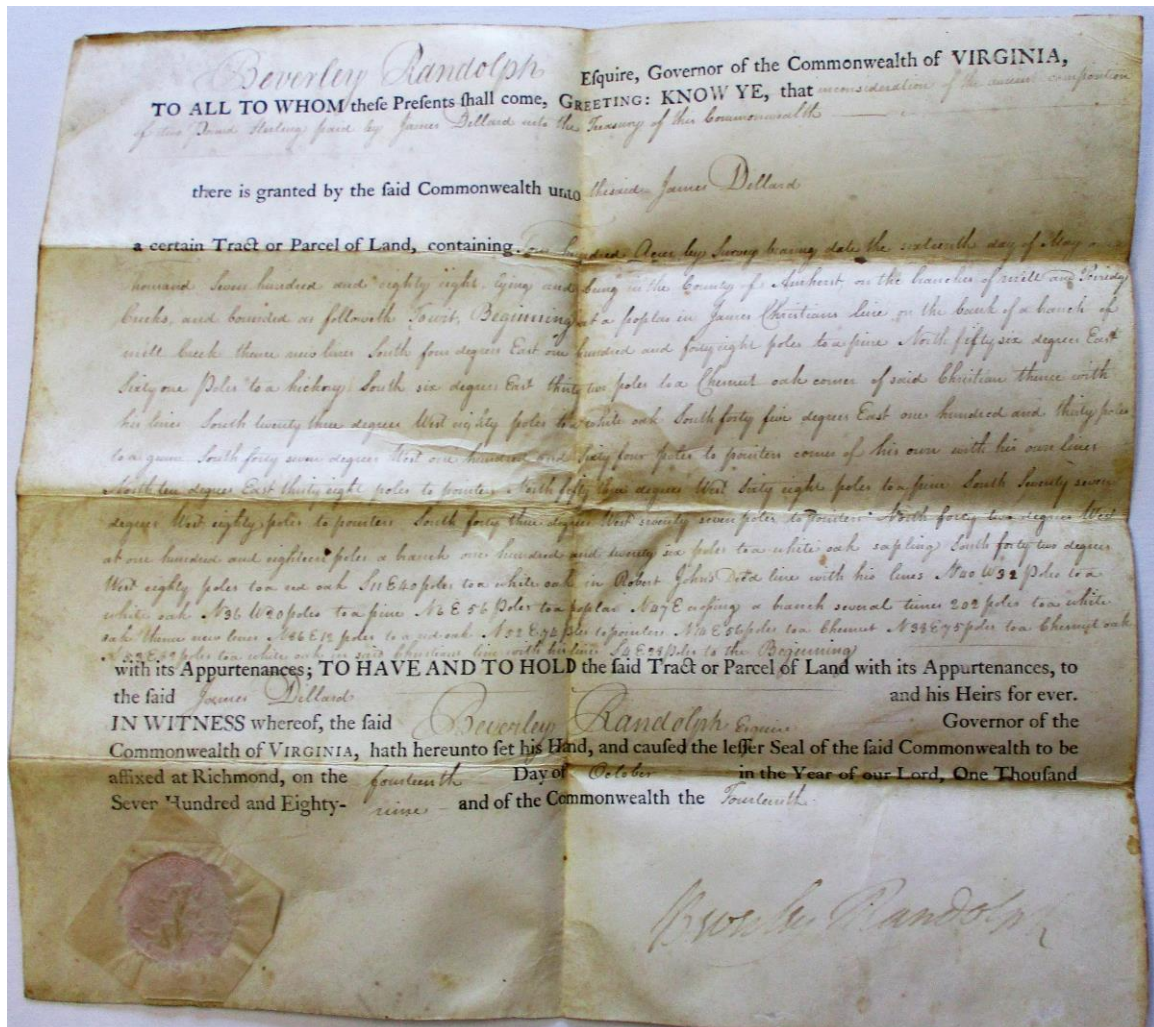 Beverley Randolph Esquire, Governor of the Commonwealth of VIRGINIA,
TO ALL TO WHOM these Presents shall come, GREETING: KNOW YE, that inconsideration of the ancient composition
of two Pound Sterling paid by James Dillard into the Treasury of this Commonwealth
there is granted by the said Commonwealth unto the said James Dillard
a certain Tract or Parcel of Land, containing hundred Acres by Survey bearing date the sixteenth day of May one
thousand seven hundred and eighty eight, lying and being in the County of Amherst on the branches of mill and
Creeks, and bounded as followeth Towit, Beginning at a poplar in James Christians line on the bank of a branch of
mill Creek thence new lines South four degrees East one hundred and forty eight poles to a pine North fifty six degrees East
Sixty one Poles to a hickory South six degrees East thirty two poles to a Chesnut oak corner of said Christian thence with
his lines South twenty three degrees West eighty poles to a white oak South forty five degrees East one hundred and thirty poles
to a gum South forty seven degrees West one hundred and Sixty four poles to pointers corner of his own with his own lines
North ten degrees East thirty eight poles to pointers North fifty three degrees West Sixty eight poles to a pine South Seventy seven
degrees West eighty poles to pointers South forty three degrees West seventy seven poles to pointers North forty two degrees West
at one hundred and eighteen poles a branch one hundred and twenty six poles to a white oak sapling South forty two degrees
West eighty poles to a red oak S11E40 poles to a white oak in Robert Johns Deed line with his lines N40W32 Poles to a
white oak N36W20 poles to a pine N6E56 Poles to a poplar N47E crossing a branch several times 202 poles to a white
oak thence new lines N86E12 poles to a red oak N52E74 poles to pointers N14E56 poles to a Chesnut N38E75 poles to a Chesnut oak
poles to a white oak in said Christians line with his line S4E28 Poles to the Beginning
with its Appurtenances; TO HAVE AND TO HOLD the said Tract or Parcel of Land with its Appurtenances, to
the said James Dillard and his Heirs for ever.
IN WITNESS whereof, the said Beverley Randolph Esquire Governor of the
Commonwealth of VIRGINIA, hath hereunto set his Hand, and caused the lesser Seal of the said Commonwealth to be
affixed at Richmond, on the fourteenth Day of October in the Year of our Lord, One Thousand
Seven Hundred and Eighty- nine and of the Commonwealth the Fourteenth
Beverley Randolph